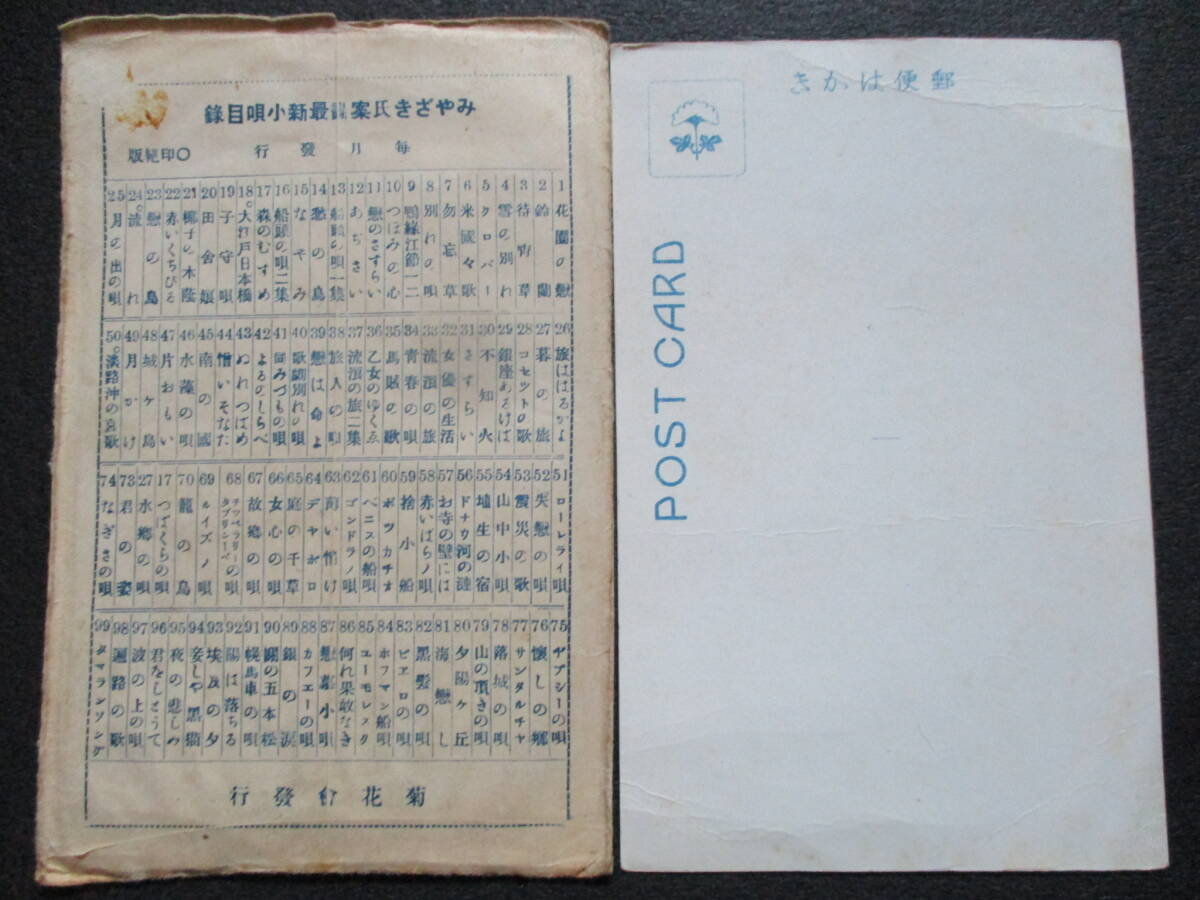 みやざき氏案 最新小唄目錄
每月發行
〇印絕版
1 花園の戀
2 鈴蘭
3 待宵草
4 雪の別れ
5 クロバー
6 米國々歌
7 勿忘草
8 別れの唄
9 鴨綠江節一二
10 つぼみの心
11 戀のさすらい
12 あぢさい
13 船頭の唄一集
14 愁の鳥
15 なぞみ
16 船頭の唄二集
17 森のむすめ
18 〇大江戸日本橋
19 子守唄
20 田舍娘
21 椰子の木蔭
22 赤いくちびる
23 戀の鳥
24 〇流れ
25 月の出の唄
26 旅はゝるかよ
27 暮の旅
28 コセットの歌
29 銀座あるけば
30 不知火
31 さすらい
32 女優の生活
33 流浪の旅
34 青春の唄
35 馬賊の歌
36 乙女のゆくゑ
37 流浪の旅二集
38 旅人の唄
39 戀は命よ
40 歌劇別れの唄
41 船みづもの唄
42 よるのしらべ
43 ぬれつばめ
44 憎いそなた
45 南の國
46 水藻の唄
47 片おもい
48 城ヶ島
49 月かげ
50 〇淡路沖の哀歌
51 ローレライ唄
52 失戀の唄
53 震災の歌
54 山中小唄
55 埴生の宿
56 ドナウ河の漣
57 お寺の壁には
58 赤いばらノ唄
59 捨小船
60 ボツカチオ
61 ベニスの船唄
62 ゴンドラノ唄
63 宵い情け
64 デヤボロ
65 庭の千草
66 女心の唄
67 故鄉の唄
68 チツペラリーの唄 タブリンベー
69 ルイズノ唄
70 籠の鳥
17 つばくらの唄
27 水鄉の唄
73 君の姿
74 なぎさの唄
75 ヂプシーの唄
76 懷しの鄉
77 サンタルチヤ
78 落城の唄
79 山の頂きの唄
80 夕陽ヶ丘
81 海戀し
82 黑髮の唄
83 ピヱロの唄
84 ホフマン船唄
85 ユーモレスク
86 何れ果敢なき
87 戀慕小唄
88 カフエーの唄
89 銀の淚
90 關の五本松
91 幌馬車の唄
92 陽は落ちる
93 埃及の夕
94 妾しや黑猫
95 夜の悲しみ
96 君をしとうて
97 波の上の唄
98 邇路の歌
99 タマランソング
菊花會發行
郵便はかき
POST CARD